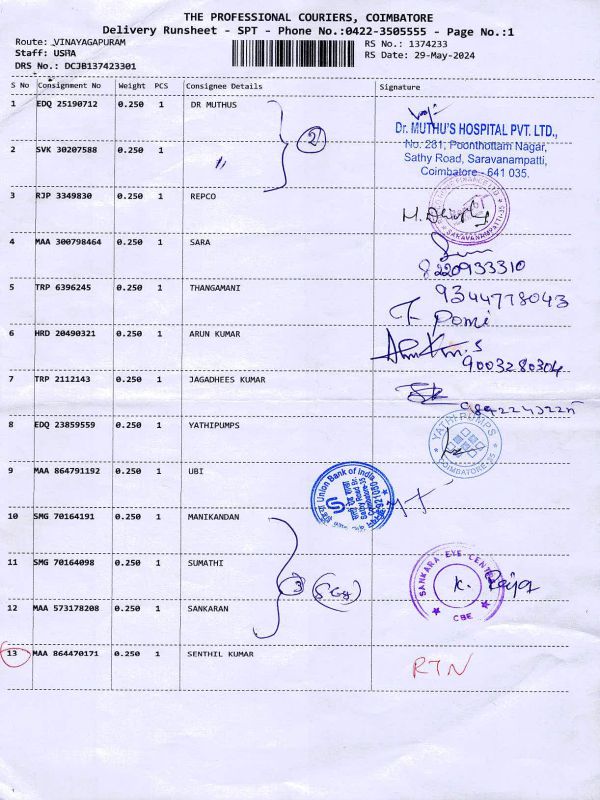 THE PROFESSIONAL COURIERS, COIMBATORE
Delivery Runsheet - SPT - Phone No.:0422-3505555 - Page No.:1
Route: VINAYAGAPURAM
RS No.: 1374233
Staff: USHA
RS Date: 29-May-2024
DRS No.: DCJB137423301
S No Consignment No Weight PCS Consignee Details Signature
1 EDQ 25190712 0.250 1 DR MUTHUS
2
Dr. MUTHU'S HOSPITAL PVT. LTD.,
No. 281, Poonthottam Nagar,
Sathy Road, Saravanampatti,
Coimbatore - 641 035.
2 SVK 30207588 0.250 1 "
3 RJP 3349830 0.250 1 REPCO
FINANCE LTD
SARAVANAMPATTI-35
4 MAA 300798464 0.250 1 SARA
8220933310
5 TRP 6396245 0.250 1 THANGAMANI
9344778043
6 HRD 20490321 0.250 1 ARUN KUMAR
9003280304
7 TRP 2112143 0.250 1 JAGADHEES KUMAR
8 EDQ 23859559 0.250 1 YATHIPUMPS
YATHI PUMPS
COIMBATORE-35
9 MAA 864791192 0.250 1 UBI
Union Bank of India
10 SMG 70164191 0.250 1 MANIKANDAN
11 SMG 70164098 0.250 1 SUMATHI
3
SANKARA EYE CENTRE
CBE
12 MAA 573178208 0.250 1 SANKARAN
13 MAA 864470171 0.250 1 SENTHIL KUMAR
RTN